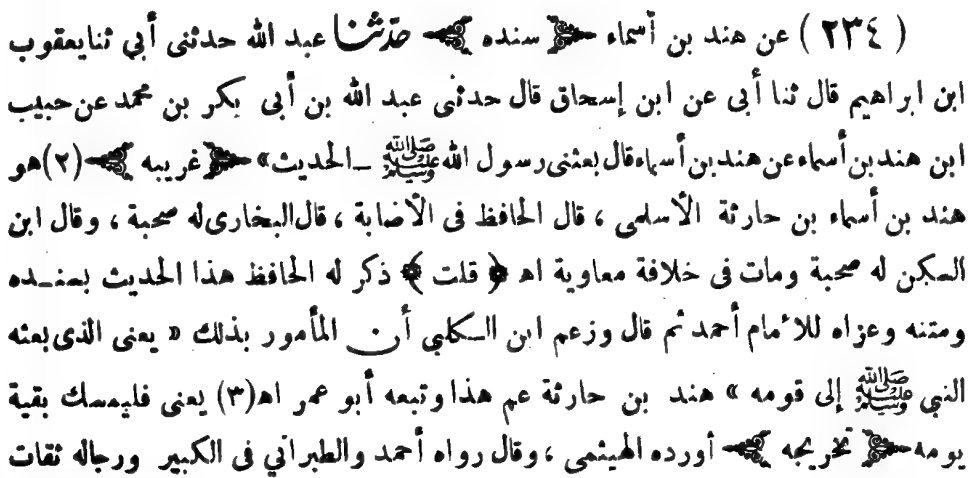 ( ٢٣٤ ) عن هند بن أسماء ﴿ سنده ﴾ حدّثنا عبد الله حدثنى أبي ثنا يعقوب
ابن ابراهيم قال ثنا أبى عن ابن إسحاق قال حدثنى عبد الله بن أبى بكر بن محمد عن حبيب
ابن هند بن أسماء عن هند بن أسماء قال بعثنى رسول الله ﷺ ـ الحديث» ﴿ غريبه ﴾ (٢) هو
هند بن أسماء بن حارثة الأسلمى ، قال الحافظ فى الأصابة ، قال البخارى له صحبة ، وقال ابن
السكن له صحبة ومات فى خلافة معاوية اهـ ﴿ قلت ﴾ ذكر له الحافظ هذا الحديث بسنـده
ومتنه وعزاه للامام أحمد ثم قال وزعم ابن الـكلبي أن المأمور بذلك « يعنى الذى بعثه
النبي ﷺ إلى قومه » هند بن حارثة عم هذا وتبعه أبو عمر اهـ (٣) يعنى فليمسك بقية
يومه ﴿ تخريجه ﴾ أورده الهيثمى ، وقال رواه أحمد والطبراني فى الكبير ورجاله ثقات